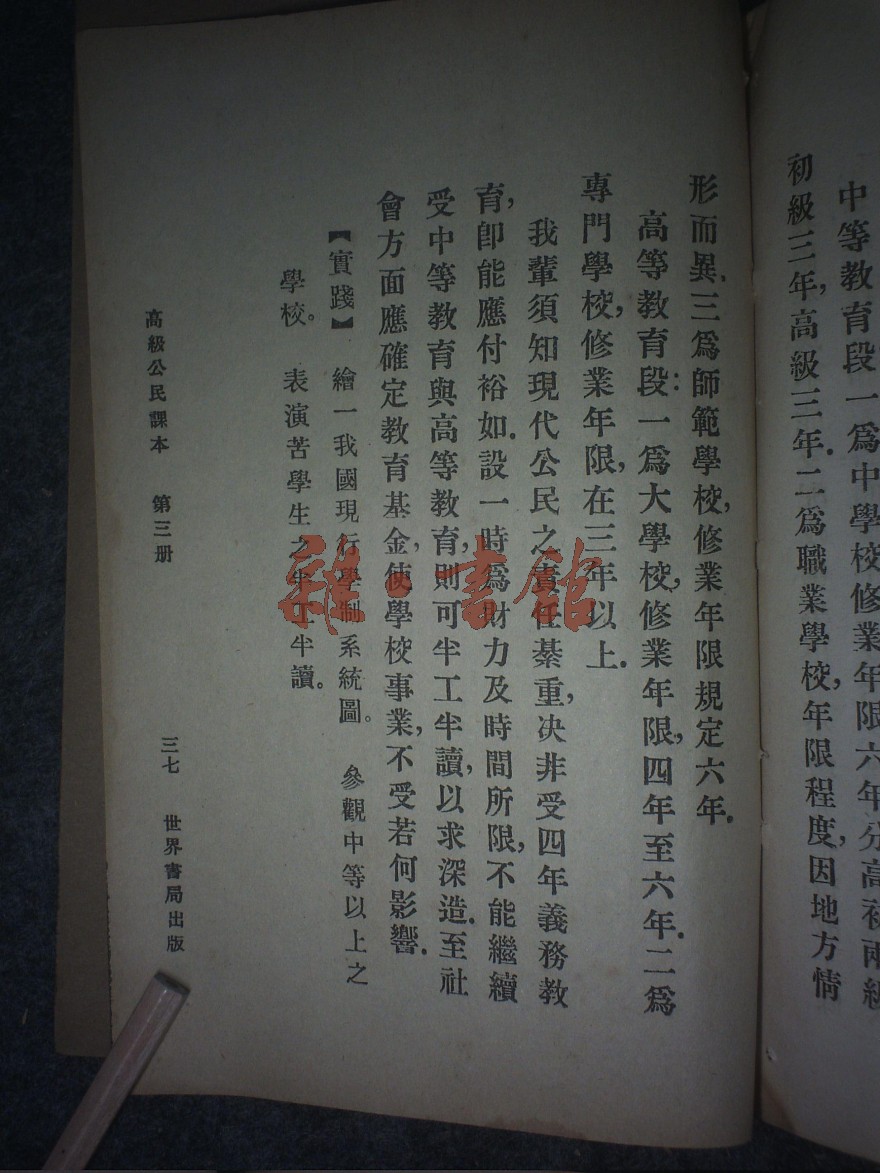 中等教育段一爲中學校修業年限六年分高初兩級
初級三年,高級三年.二爲職業學校,年限程度,因地方情
形而異.三爲師範學校,修業年限規定六年.
高等教育段:一爲大學校,修業年限,四年至六年.二爲
專門學校,修業年限,在三年以上.
我輩須知現代公民之責任綦重,决非受四年義務教
育,卽能應付裕如.設一時爲財力及時間所限,不能繼續
受中等教育與高等教育,則可半工半讀,以求深造.至社
會方面應確定教育基金,使學校事業,不受若何影響.
【實踐】繪一我國現行學制系統圖。 參觀中等以上之
學校。 表演苦學生之半工半讀。
高級公民課本 第三册 三七 世界書局出版
雜·書館